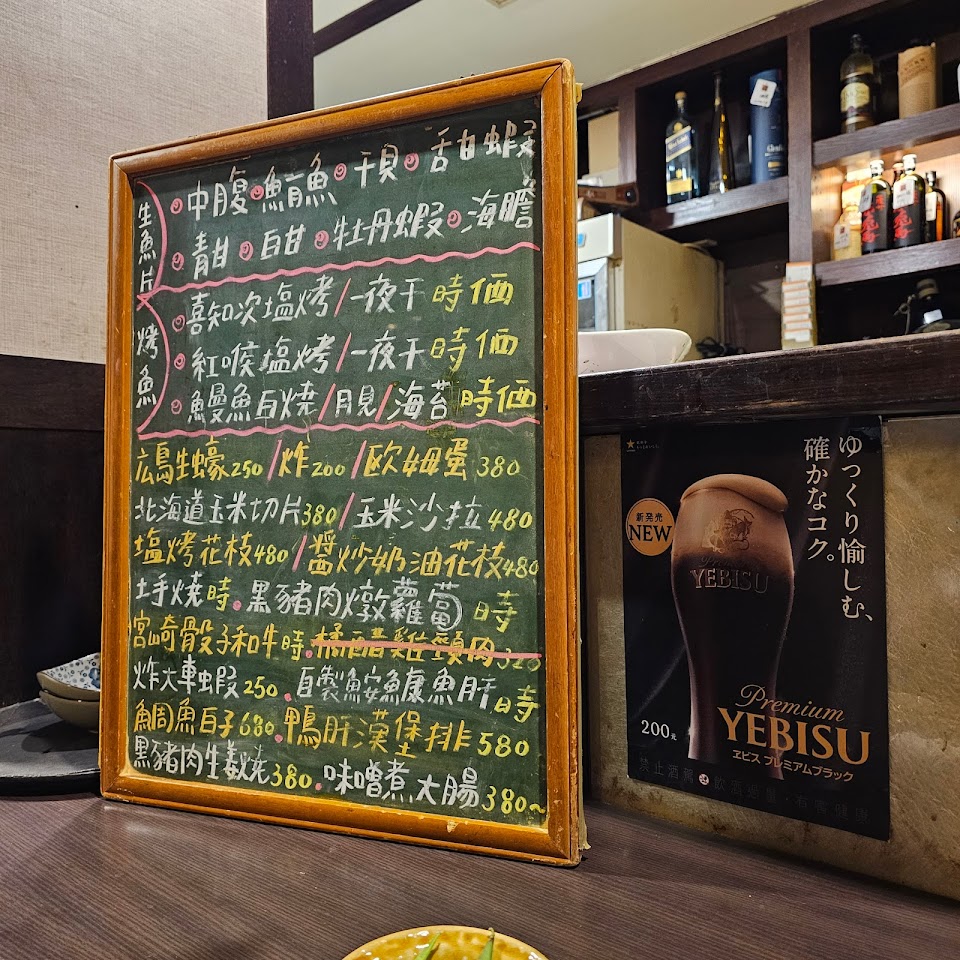 生魚片
中腹 鯖魚 干貝 甜蝦
青甘 白甘 牡丹蝦 海膽
烤魚
喜知次塩烤/一夜干 時価
紅喉塩烤/一夜干 時価
鰻魚白燒/月見/海苔 時価
広島生蠔250/炸200/歐姆蛋380
北海道玉米切片380/玉米沙拉480
塩烤花枝480/醬炒奶油花枝480
土手燒時.黑豬肉燉蘿蔔 時
宮崎骰子和牛時.橘醋雞頸肉320
炸大車蝦250.自製鮟鱇魚肝時
鯛魚白子680.鴨肝漢堡排580
黑豬肉生薑燒380.味噌煮大腸380~
ゆっくり愉しむ、
確かなコク。
新発売
NEW
YEBISU
200元
Premium
YEBISU
ヱビス プレミアムブラック
禁止酒駕